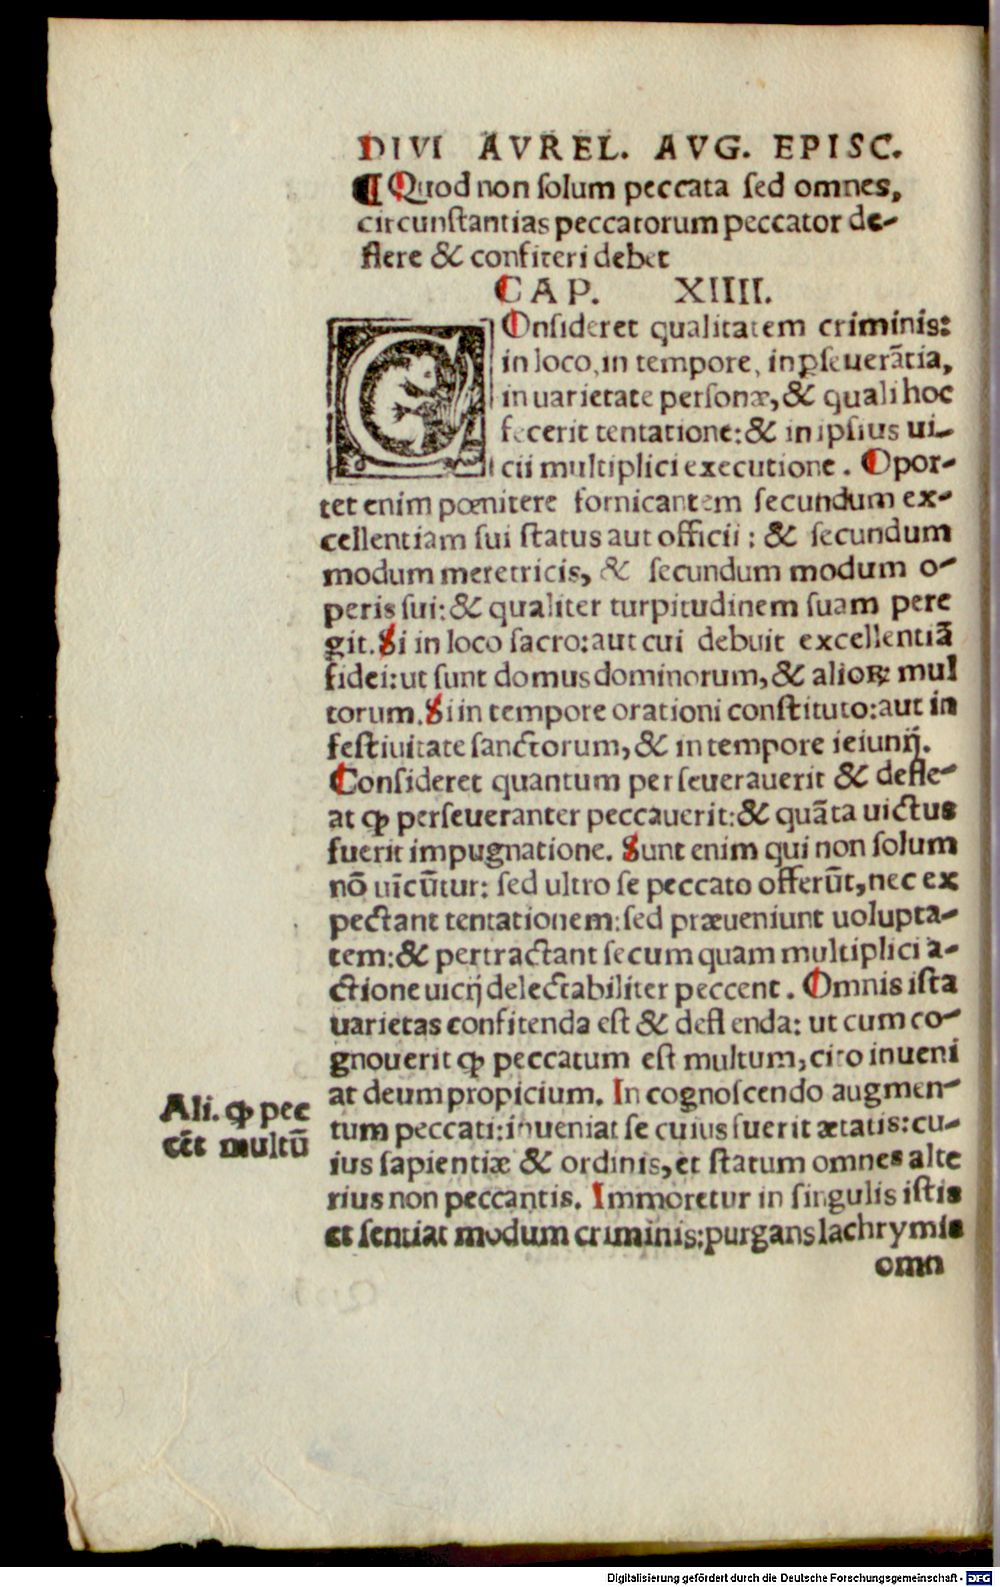 DIVI AVREL. AVG. EPISC.
¶ Quod non solum peccata sed omnes,
circunstantias peccatorum peccator de-
flere & confiteri debet
CAP. XIIII.
COnsideret qualitatem criminis:
in loco, in tempore, in ꝑseuerãtia,
in uarietate personæ, & quali hoc
fecerit tentatione: & in ipsius ui-
cii multiplici executione. Opor-
tet enim pœnitere fornicantem secundum ex-
cellentiam sui status aut officii: & secundum
modum meretricis, & secundum modum o-
peris sui: & qualiter turpitudinem suam pere
git. Si in loco sacro: aut cui debuit excellentiã
fidei: ut sunt domus dominorum, & alioꝝ mul
torum. Si in tempore orationi constituto: aut in
festiuitate sanctorum, & in tempore ieiunij.
Consideret quantum perseuerauerit & defle-
at ꝙ perseueranter peccauerit: & quãta uictus
fuerit impugnatione. Sunt enim qui non solum
nõ uĩcũtur: sed ultro se peccato offerũt, nec ex
pectant tentationem: sed præueniunt uolupta-
tem: & pertractant secum quam multiplici a-
ctione uicij delectabiliter peccent. Omnis ista
uarietas confitenda est & deflenda: ut cum co-
gnouerit ꝙ peccatum est multum, cito inueni
at deum propicium. In cognoscendo augmen-
tum peccati: inueniat se cuius fuerit ætatis: cu-
ius sapientiæ & ordinis, et statum omnes alte
rius non peccantis. Immoretur in singulis istis
et sentiat modum criminis: purgans lachrymis
omn
Ali. ꝙ pec
cẽt multũ
Digitalisierung gefördert durch die Deutsche Forschungsgemeinschaft - DFG